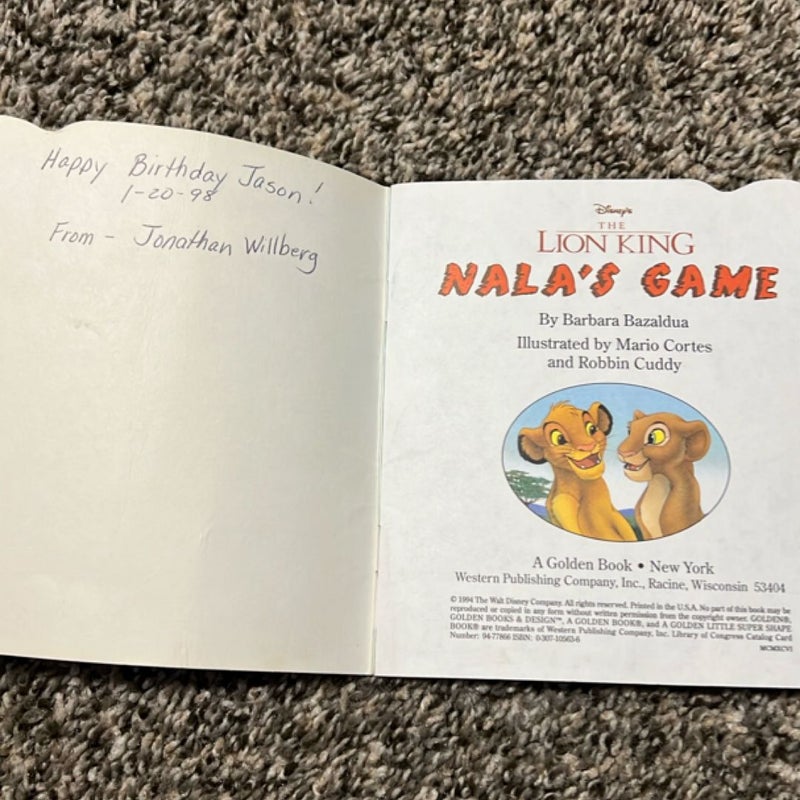 Happy Birthday Jason!
1-20-98
From - Jonathan Willberg
Disney's
THE
LION KING
NALA'S GAME
By Barbara Bazaldua
Illustrated by Mario Cortes
and Robbin Cuddy
A Golden Book • New York
Western Publishing Company, Inc., Racine, Wisconsin 53404
© 1994 The Walt Disney Company. All rights reserved. Printed in the U.S.A. No part of this book may be
reproduced or copied in any form without written permission from the copyright owner. GOLDEN®,
GOLDEN BOOKS & DESIGN™, A GOLDEN BOOK®, and A GOLDEN LITTLE SUPER SHAPE
BOOK® are trademarks of Western Publishing Company, Inc. Library of Congress Catalog Card
Number: 94-77866 ISBN: 0-307-10563-6
MCMXCVI